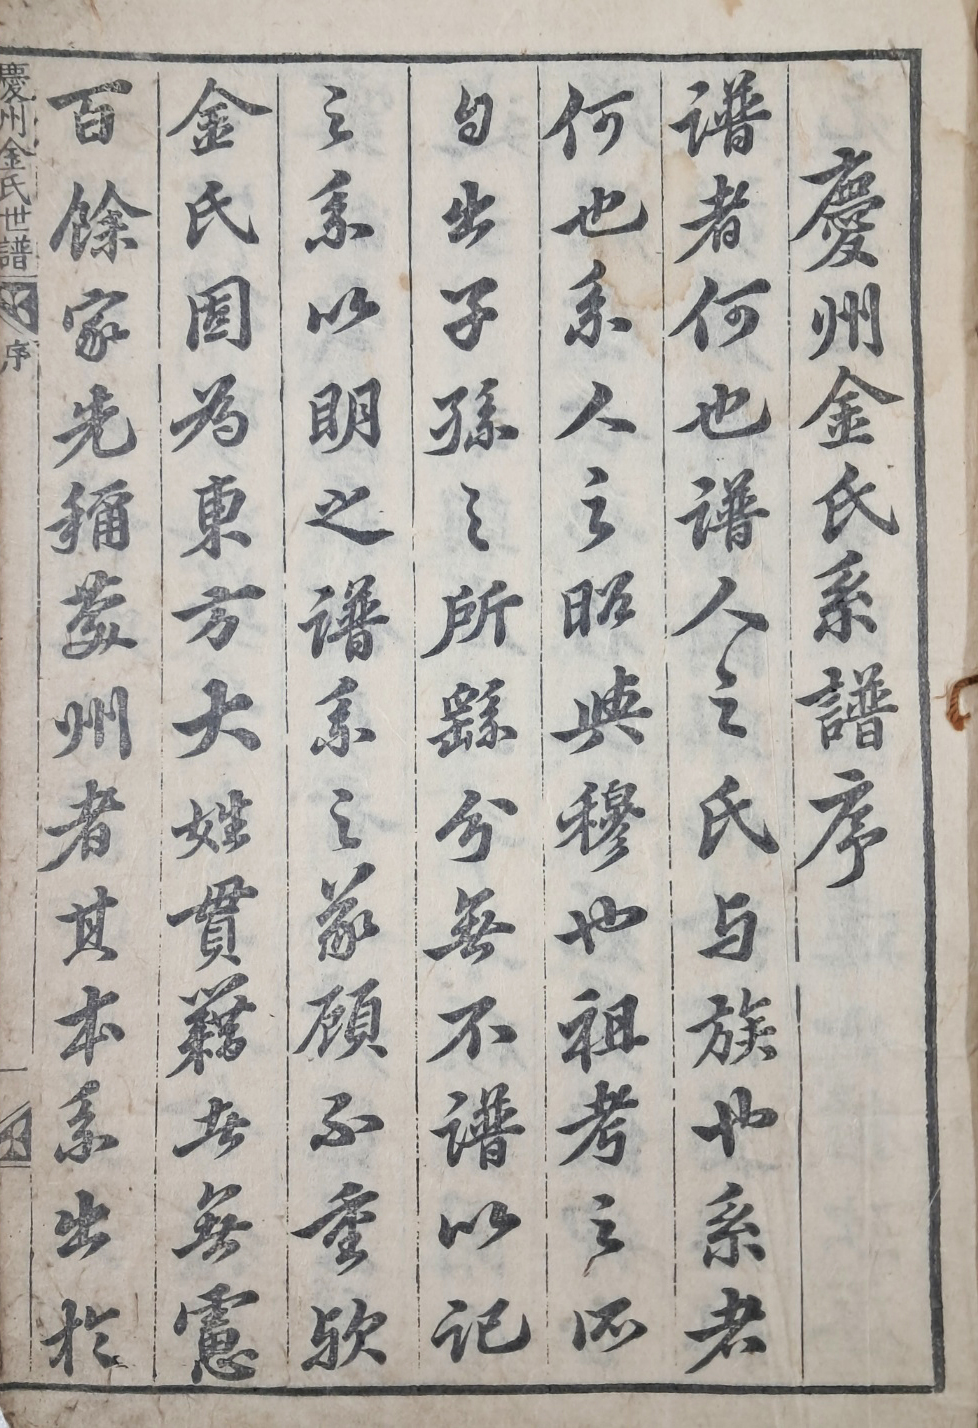 慶州金氏系譜序
譜者何也譜人之氏与族也系者
何也系人之昭與穆也祖考之所
自出子孫之所繇分無不譜以記
之系以明之譜系之義顧不重歟
金氏固為東方大姓貫籍者無慮
百餘家先稱慶州者其本系出於
慶州金氏世譜 序